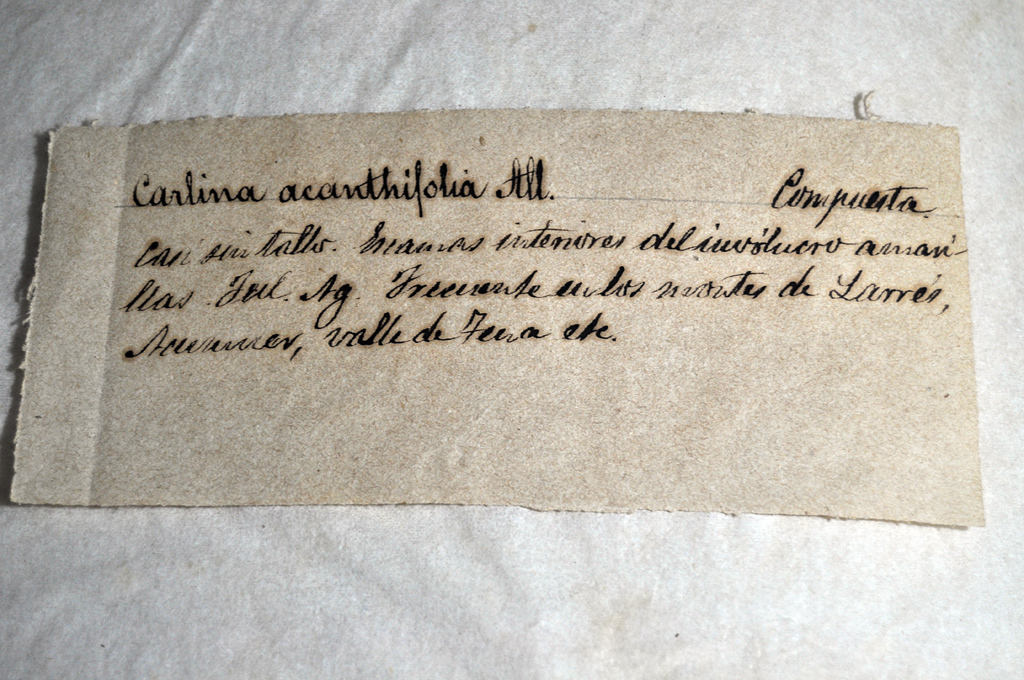 Carlina acanthifolia All. Compuesta.
Casi sin tallo. Escamas interiores del invólucro amari-
llas. Jul. Ag. Frecuente en los montes de Larrés,
Acumuer, valle de Tena etc.